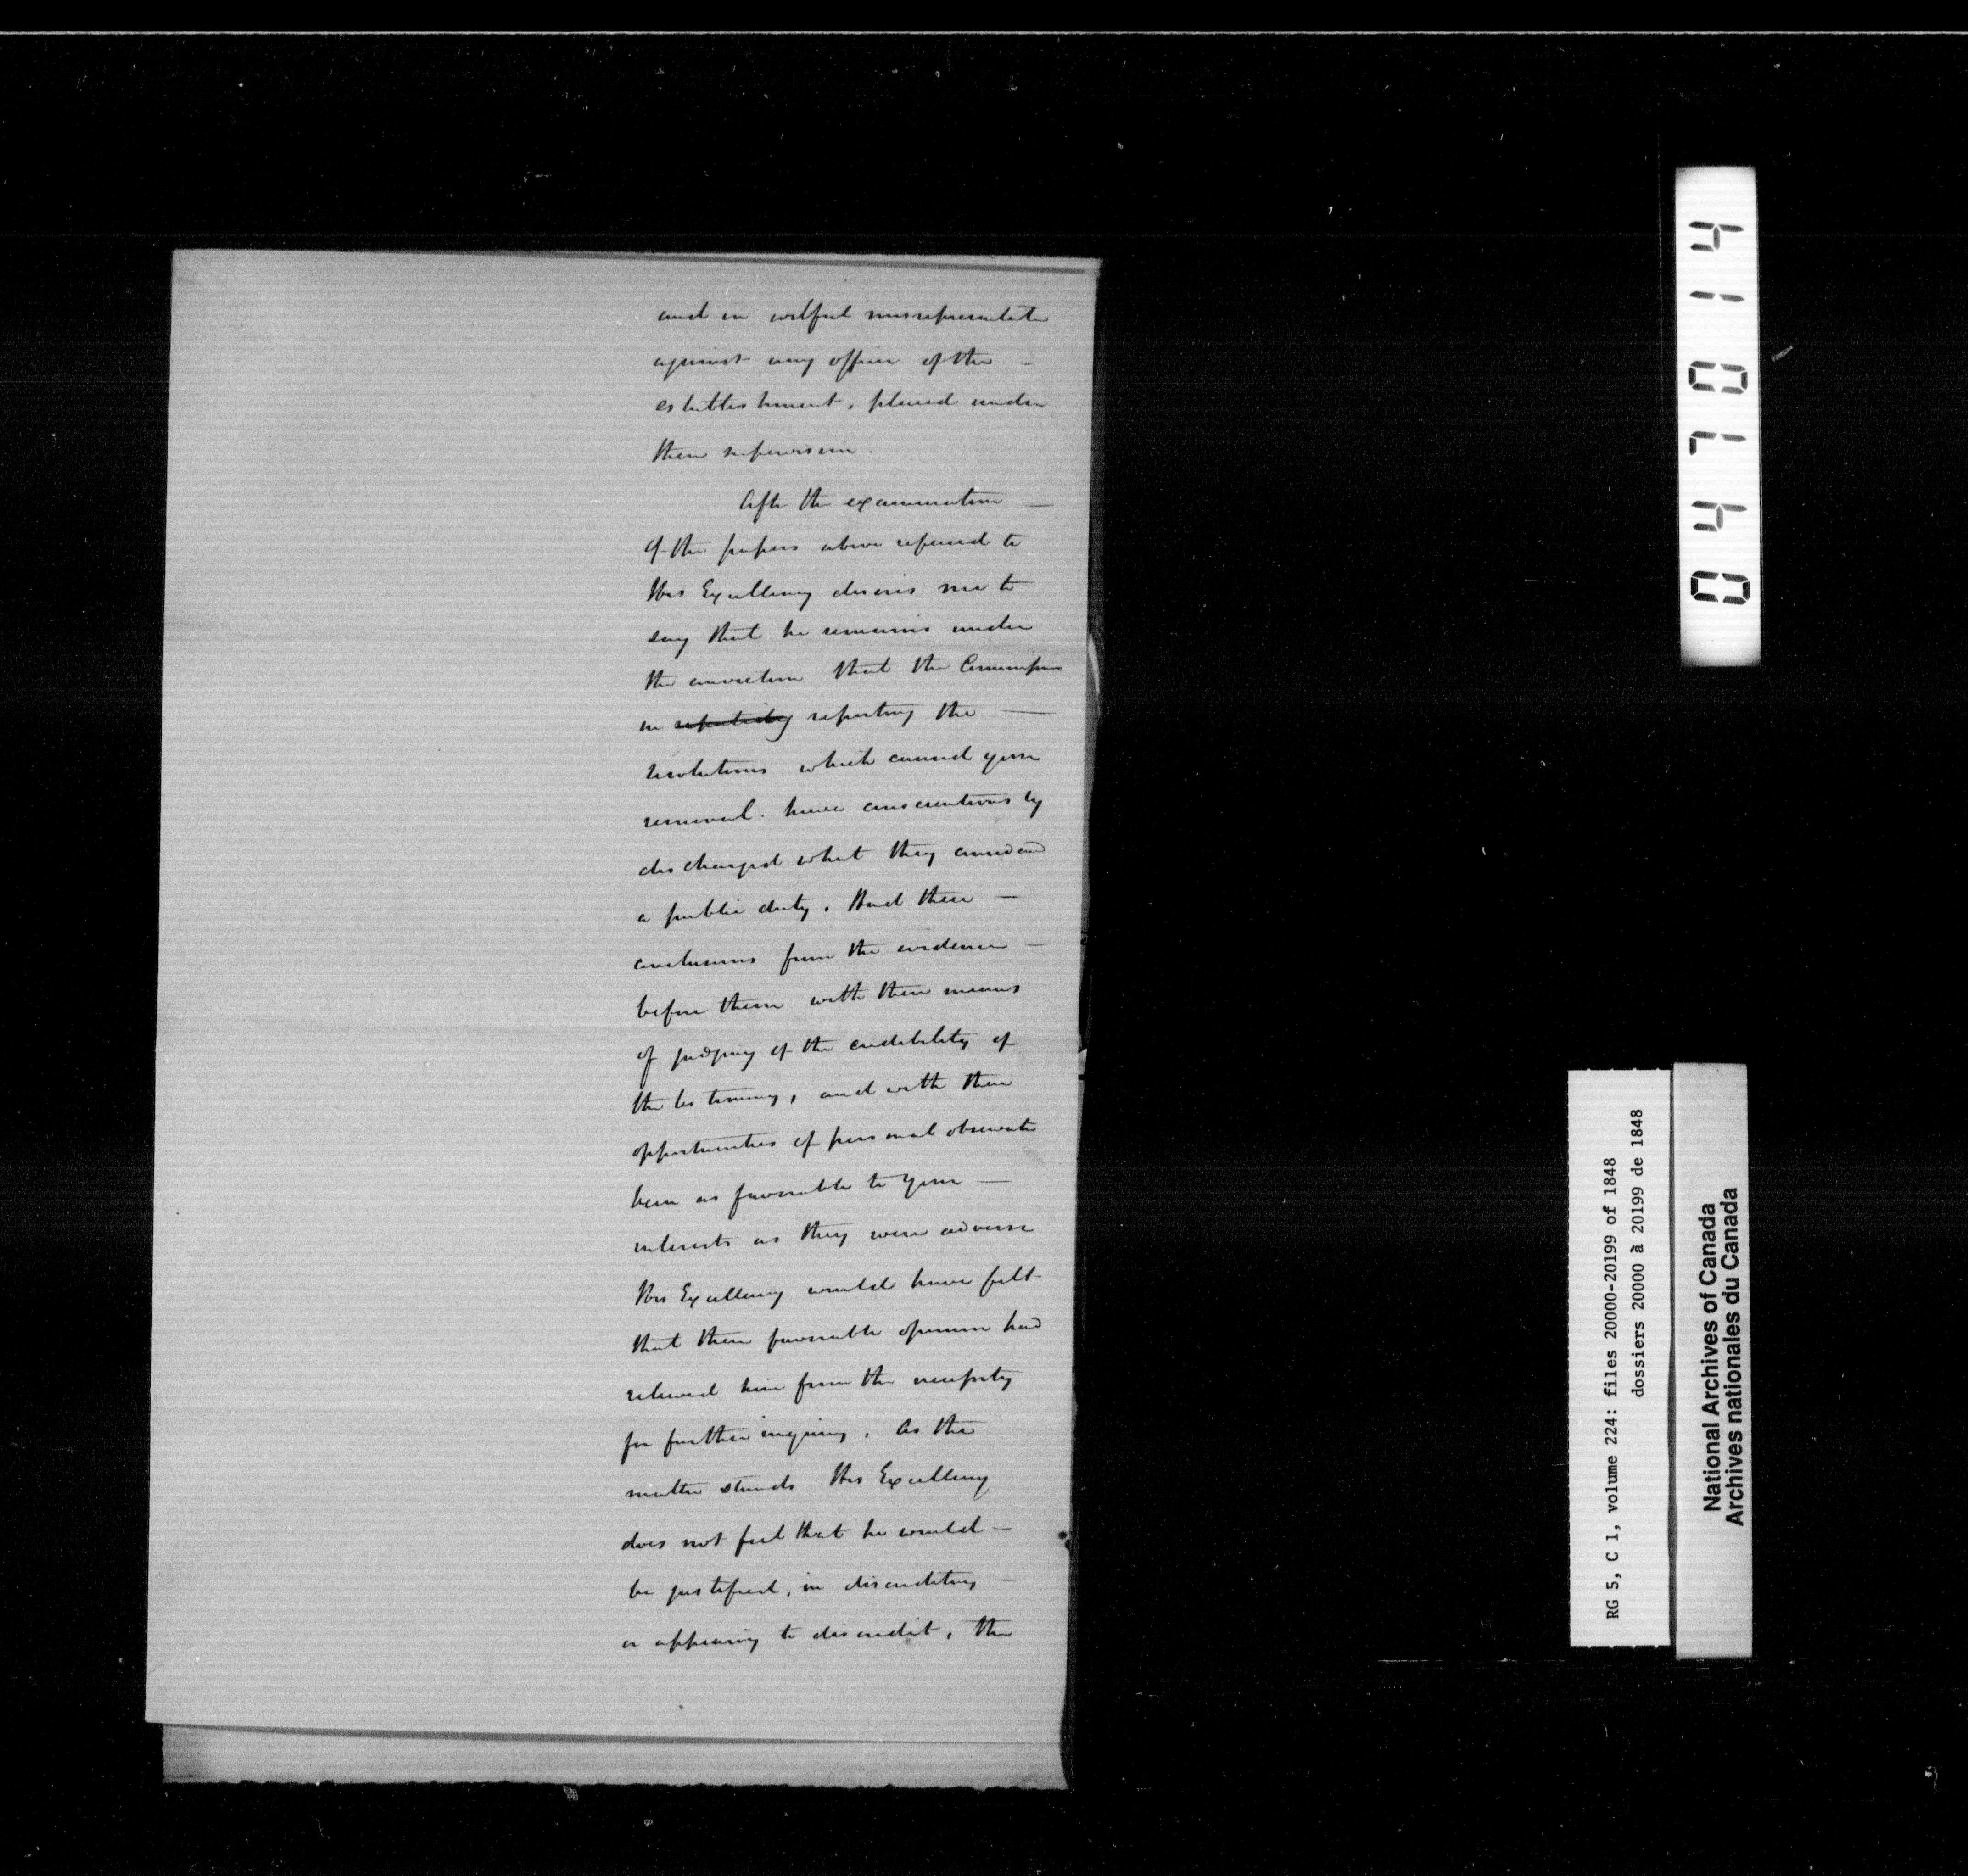 and in wilful misrepresentation
against any officer of the —
establishment, placed under
their supervision.
After the examination —
of the papers above referred to
His Excellency desires me to
say that he remains under
the conviction that the Commissioners
in reporting the —
resolutions which caused your
removal. have conscientiously
discharged what they considered
a public duty. Had their —
conclusions from the evidence —
before them with their means
of judging of the credibility of
the testimony, and with their
opportunities of personal observation
been as favorable to your —
interests as they were adverse
His Excellency would have felt
that their favorable opinion had
relieved him from the necessity
for further inquiry. As the
matter stands His Excellency
does not feel that he would —
be justified, in discrediting —
or appearing to discredit, the
041014
RG 5, C 1, volume 224: files 20000-20199 of 1848
dossiers 20000 à 20199 de 1848
National Archives of Canada
Archives nationales du Canada